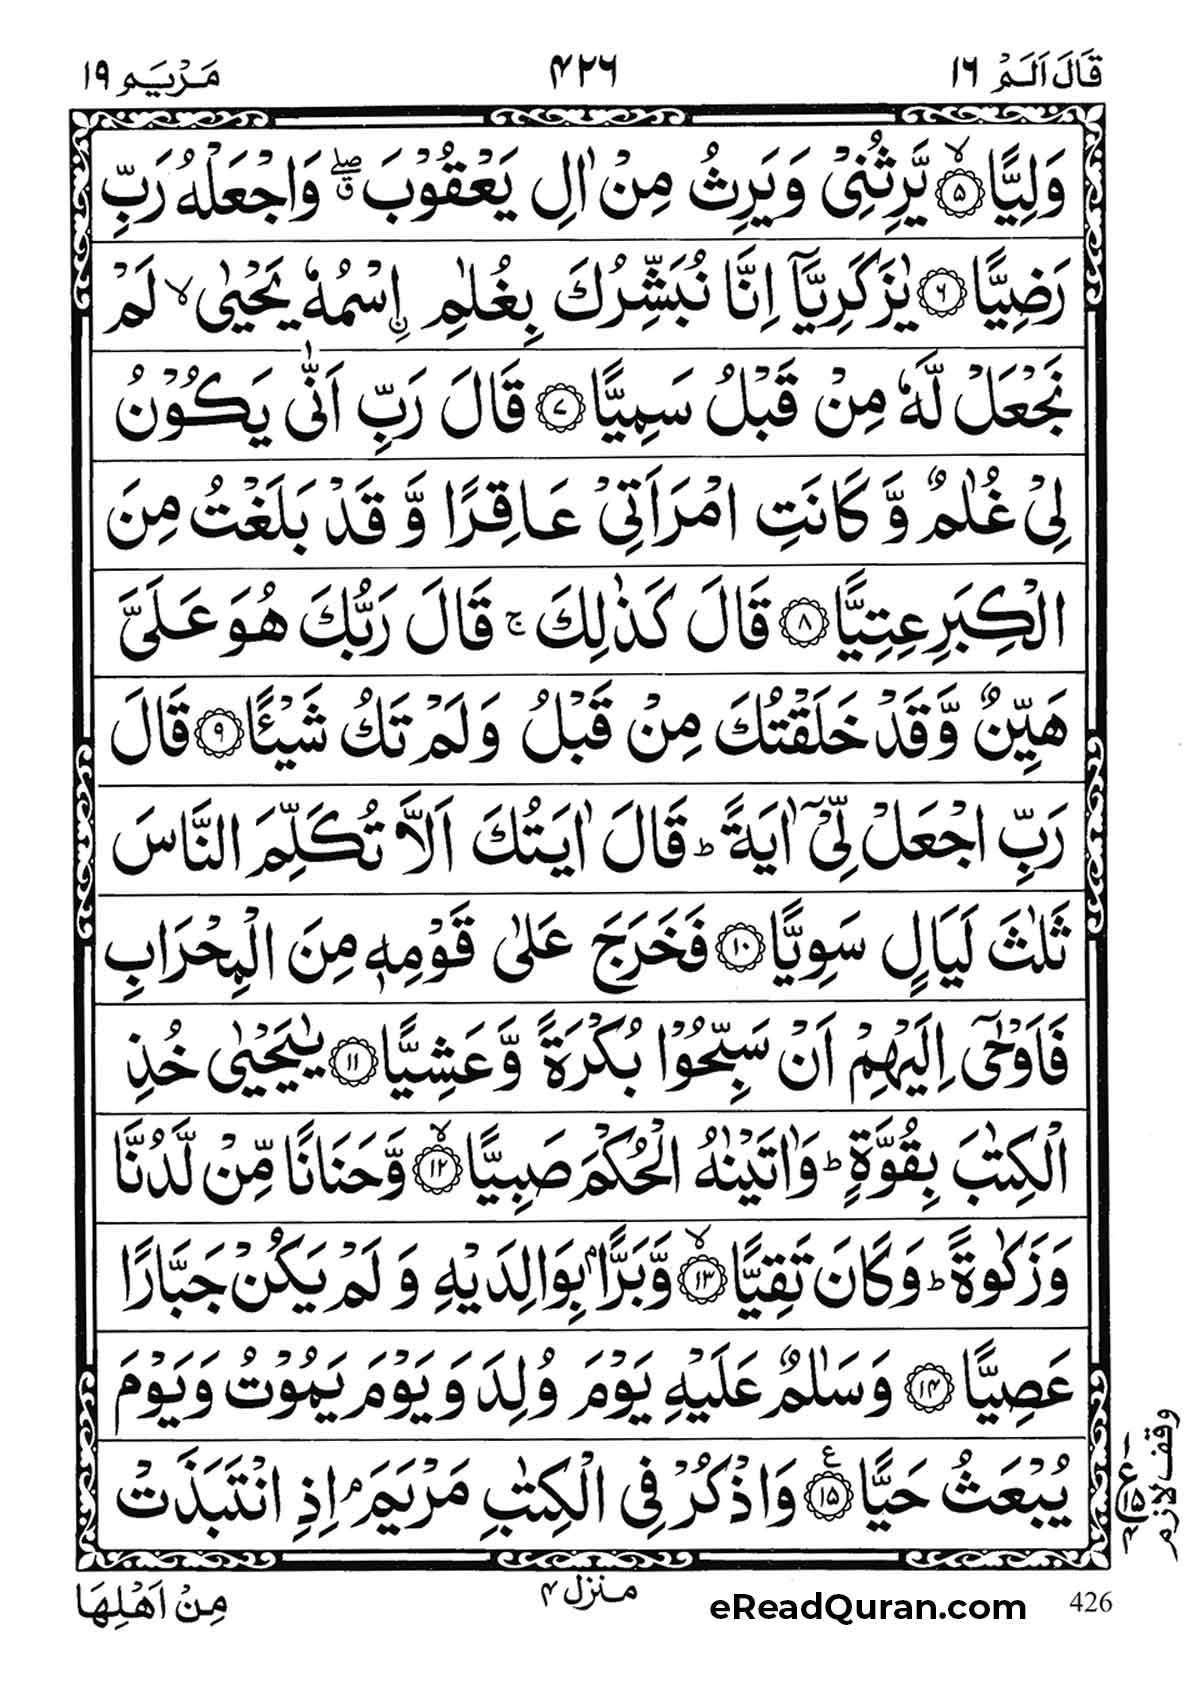 قَالَ اَلَمْ ١٦ ۴۲۶ مَرْيَم ١٩
وَلِيًّا ۙ‏﴿۵﴾ يَّرِثُنِىْ وَيَرِثُ مِنْ اٰلِ يَعْقُوْبَ ۖۗ وَاجْعَلْهُ رَبِّ
رَضِيًّا ﴿۶﴾ يٰزَكَرِيَّآ اِنَّا نُبَشِّرُكَ بِغُلٰمِ اۨسْمُهٗ يَحْيٰى ۙ لَمْ
نَجْعَلْ لَّهٗ مِنْ قَبْلُ سَمِيًّا ﴿۷﴾ قَالَ رَبِّ اَنّٰى يَكُوْنُ
لِىْ غُلٰمٌ وَّكَانَتِ امْرَاَتِىْ عَاقِرًا وَّقَدْ بَلَغْتُ مِنَ
الْكِبَرِ عِتِيًّا ﴿۸﴾ قَالَ كَذٰلِكَ ۚ قَالَ رَبُّكَ هُوَ عَلَىَّ
هَيِّنٌ وَّقَدْ خَلَقْتُكَ مِنْ قَبْلُ وَلَمْ تَكُ شَيْـًٔا ﴿۹﴾ قَالَ
رَبِّ اجْعَلْ لِّىْۤ اٰيَةً ؕ قَالَ اٰيَتُكَ اَلَّا تُكَلِّمَ النَّاسَ
ثَلٰثَ لَيَالٍ سَوِيًّا ﴿۱۰﴾ فَخَرَجَ عَلٰى قَوْمِهٖ مِنَ الْمِحْرَابِ
فَاَوْحٰٓى اِلَيْهِمْ اَنْ سَبِّحُوْا بُكْرَةً وَّعَشِيًّا ﴿۱۱﴾ يٰيَحْيٰى خُذِ
الْكِتٰبَ بِقُوَّةٍ ؕ وَاٰتَيْنٰهُ الْحُكْمَ صَبِيًّا ۙ‏﴿۱۲﴾ وَّحَنَانًا مِّنْ لَّدُنَّا
وَزَكٰوةً ؕ وَكَانَ تَقِيًّا ۙ‏﴿۱۳﴾ وَّبَرًّۢا بِوَالِدَيْهِ وَلَمْ يَكُنْ جَبَّارًا
عَصِيًّا ﴿۱۴﴾ وَسَلٰمٌ عَلَيْهِ يَوْمَ وُلِدَ وَيَوْمَ يَمُوْتُ وَيَوْمَ
يُبْعَثُ حَيًّا ﴿۱۵﴾ ع وَاذْكُرْ فِى الْكِتٰبِ مَرْيَمَ ۘ اِذِ انْتَبَذَتْ
وقف لازم
ع ۱۵ ۴
مِنْ اَهْلِهَا
منزل ۴
eReadQuran.com
426